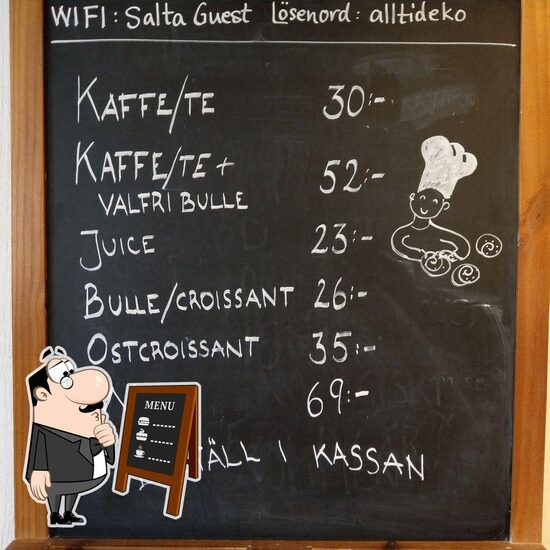 WIFI: Salta Guest Lösenord: alltideko
KAFFE/TE 30:-
KAFFE/TE + 52:-
VALFRI BULLE
JUICE 23:-
BULLE/CROISSANT 26:-
OSTCROISSANT 35:-
69:-
I KASSAN
MENU